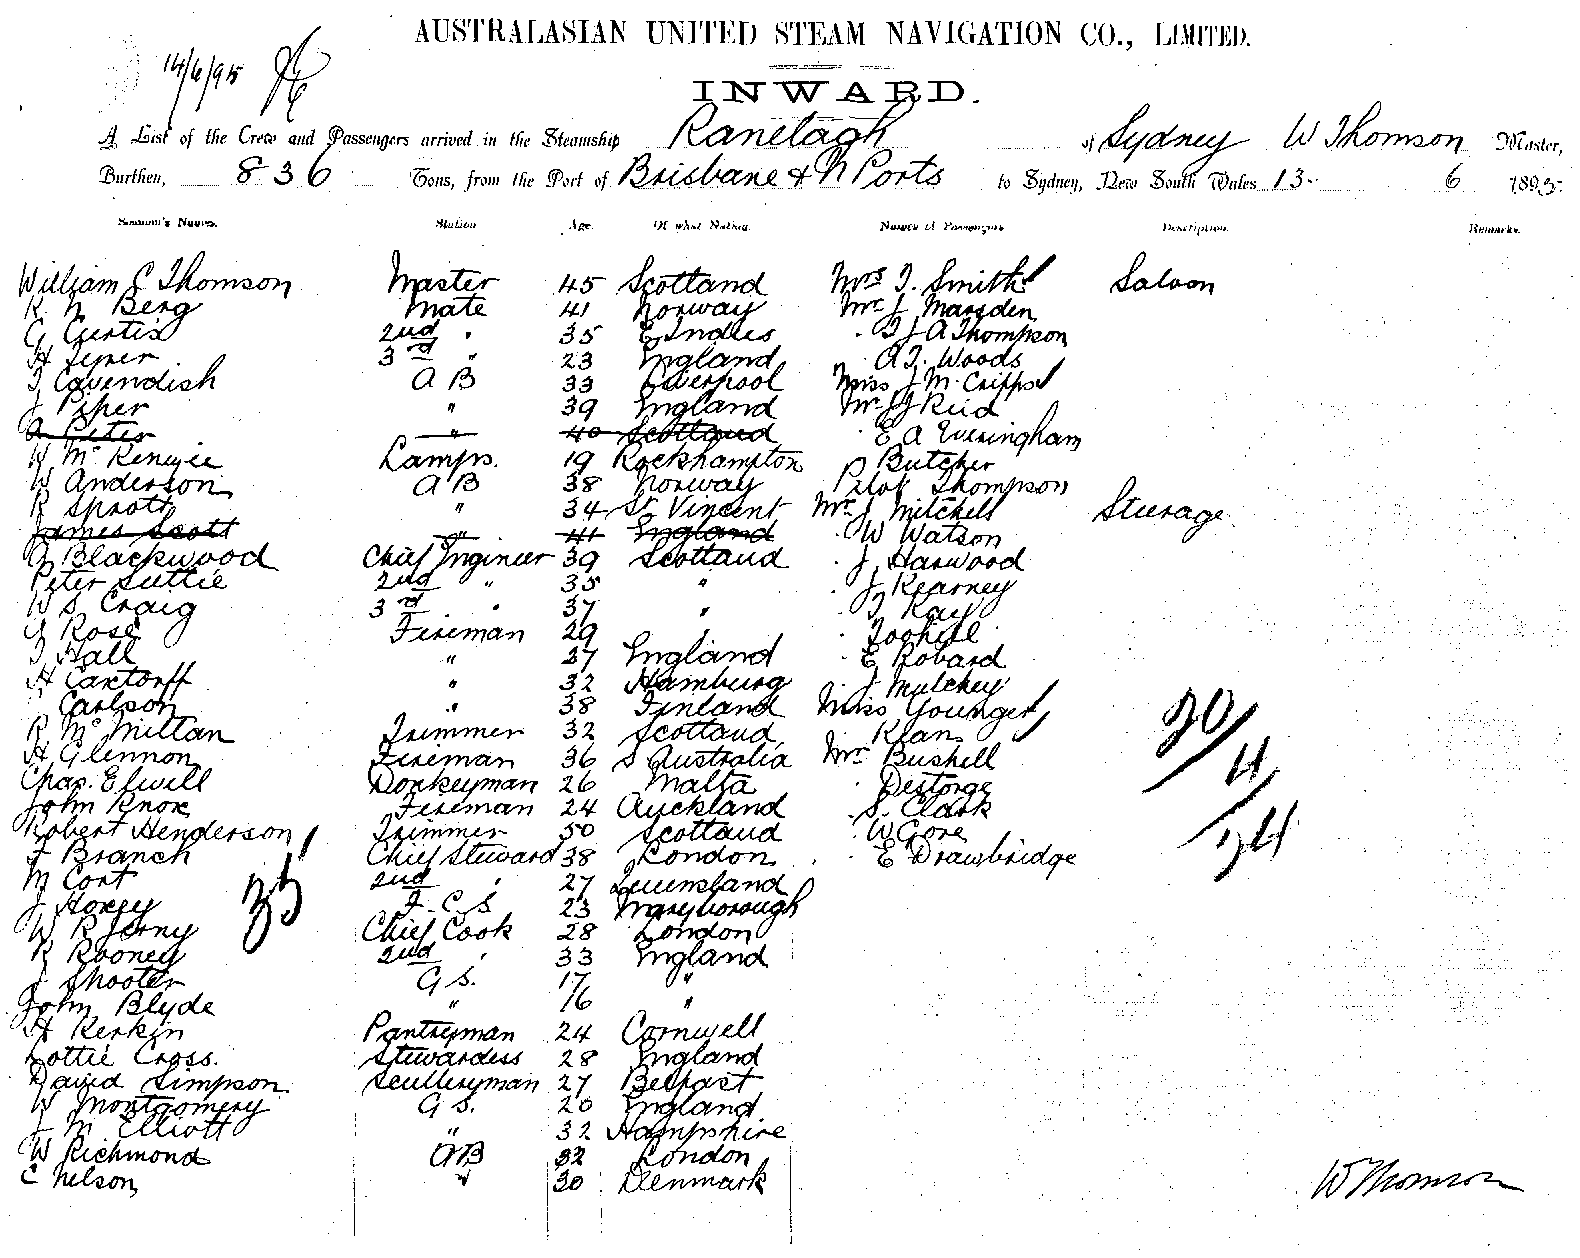 AUSTRALASIAN UNITED STEAM NAVIGATION CO., LIMITED.
14/6/95
INWARD.
A List of the Crew and Passengers arrived in the Steamship Ranelagh of Sydney W Thomson Master,
Burthen, 836 Tons, from the Port of Brisbane & N Ports to Sydney, New South Wales 13 6 1895
Seaman's Names. Station Age. Of what Nation. Names of Passengers Description. Remarks.
William C Thomson Master 45 Scotland Mrs T. Smith Saloon
R N Berg Mate 41 Norway Mr J Marsden
G Curtis 2nd " 35 E Indies " J A Thompson
H 3rd " 23 England A T. Woods
T Cavendish A B 33 Liverpool Miss J M Cripps
J Piper " 39 England Mr J Reid
A Peter " 40 Scotland E A Everingham
W McKenzie Lamps. 19 Rockhampton P Butcher
W Anderson A B 38 Norway Pilot Thompson
R Sprott " 34 St Vincent Mr J Mitchell Steerage
James Scott " 41 England W Watson
Blackwood Chief Engineer 39 Scotland J Harwood
Peter Suttie 2nd " 35 " J Kearney
W S Craig 3rd " 37 " T Kay
J Rose Fireman 29 " Toohill
T Hall " 27 England E Robard
H Caxtorff " 32 Hamburg J Mulchey
" Carlson " 38 Finland Miss Younger
R McMillan Trimmer 32 Scotland " Klans
H Glennon Fireman 36 S Australia Mr Bushell
Chas. Elwill Donkeyman 26 Malta " Destorge
John Knox Fireman 24 Auckland S. Clark
Robert Henderson Trimmer 50 Scotland W Gore
F Branch Chief Steward 38 London " E Drawbridge
M Cort 2nd " 27 Queensland
J Horsey F. C. S 23 Maryborough
W R Chief Cook 28 London
R Rooney 2nd " 33 England
J Shooter G S. 17 "
John Blyde " 16 "
H Kerkin Pantryman 24 Cornwell
Lottie Cross. Stewardess 28 England
David Simpson Sculleryman 27 Belfast
W Montgomery G S. 20 England
J M Elliott " 32 Hampshire
W Richmond A B 32 London
C Nelson " 30 Denmark
35
20/
4/
/24
W Thomson